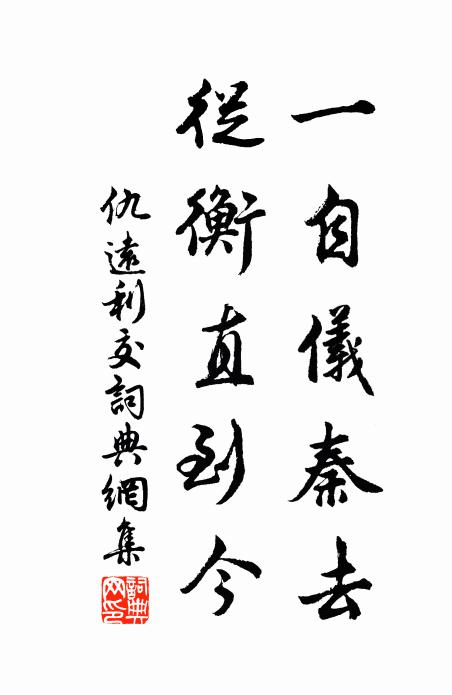 一自儀秦去
從衡直到今
仇遠利交詞典網集
詞典網印